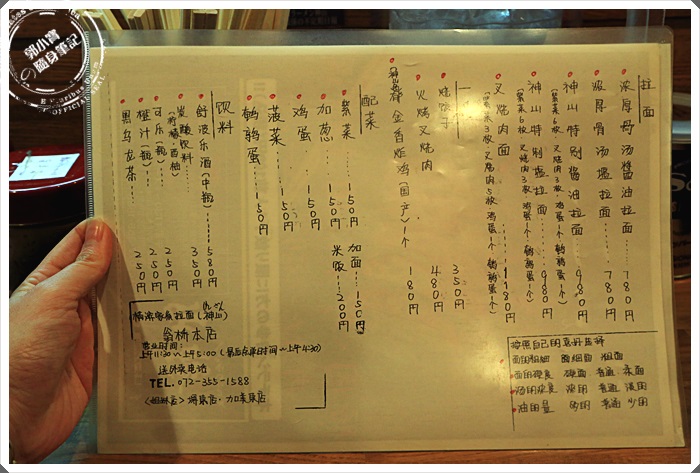 拉面
浓厚骨汤酱油拉面……780円
浓厚骨汤塩拉面……780円
神山特别酱油拉面……980円
(紫菜6枚 叉烧肉3枚 鸡蛋1个 鹌鹑蛋1个)
神山特别塩拉面……980円
(紫菜6枚 叉烧肉3枚 鸡蛋1个 鹌鹑蛋1个)
叉烧肉面……1180円
烧饺子 350円
火烤叉烧肉 480円
1个 180円
配菜
紫菜……150円
加葱……150円
鸡蛋……150円
菠菜……150円
鹌鹑蛋……150円
加面……150円
米饭……200円
饮料
舒波乐酒(中瓶)……580円
碳酸饮料……350円
可乐(瓶)……250円
橙汁(瓶)……250円
黑乌龙茶……250円
横滨家系拉面(神山)
翁桥本店
营业时间:
上午11:30~上午5:00(最后点单时间~上午4:30)
送外卖电话
TEL. 072-355-1588
<姐妹店> 堺东店・加美东店
按照自己的喜好选择
面的粗细 细面 粗面
面的硬度 硬面 普通 柔面
汤的浓度 浓的 普通 淡的
油的量 多的 普通 少的
郭小寶
隨身筆記
OFFICIAL SEAL